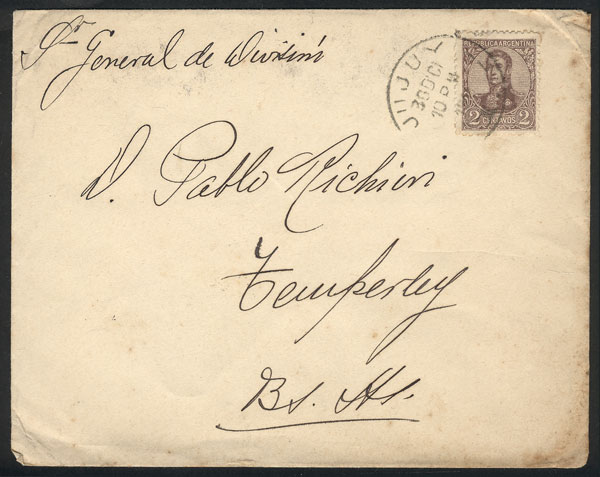 Sr General de División
JUJUY
REPUBLICA ARGENTINA
30 DIC
10 P M
2 CENTAVOS 2
D. Pablo Richieri
Temperley
Bs. As.